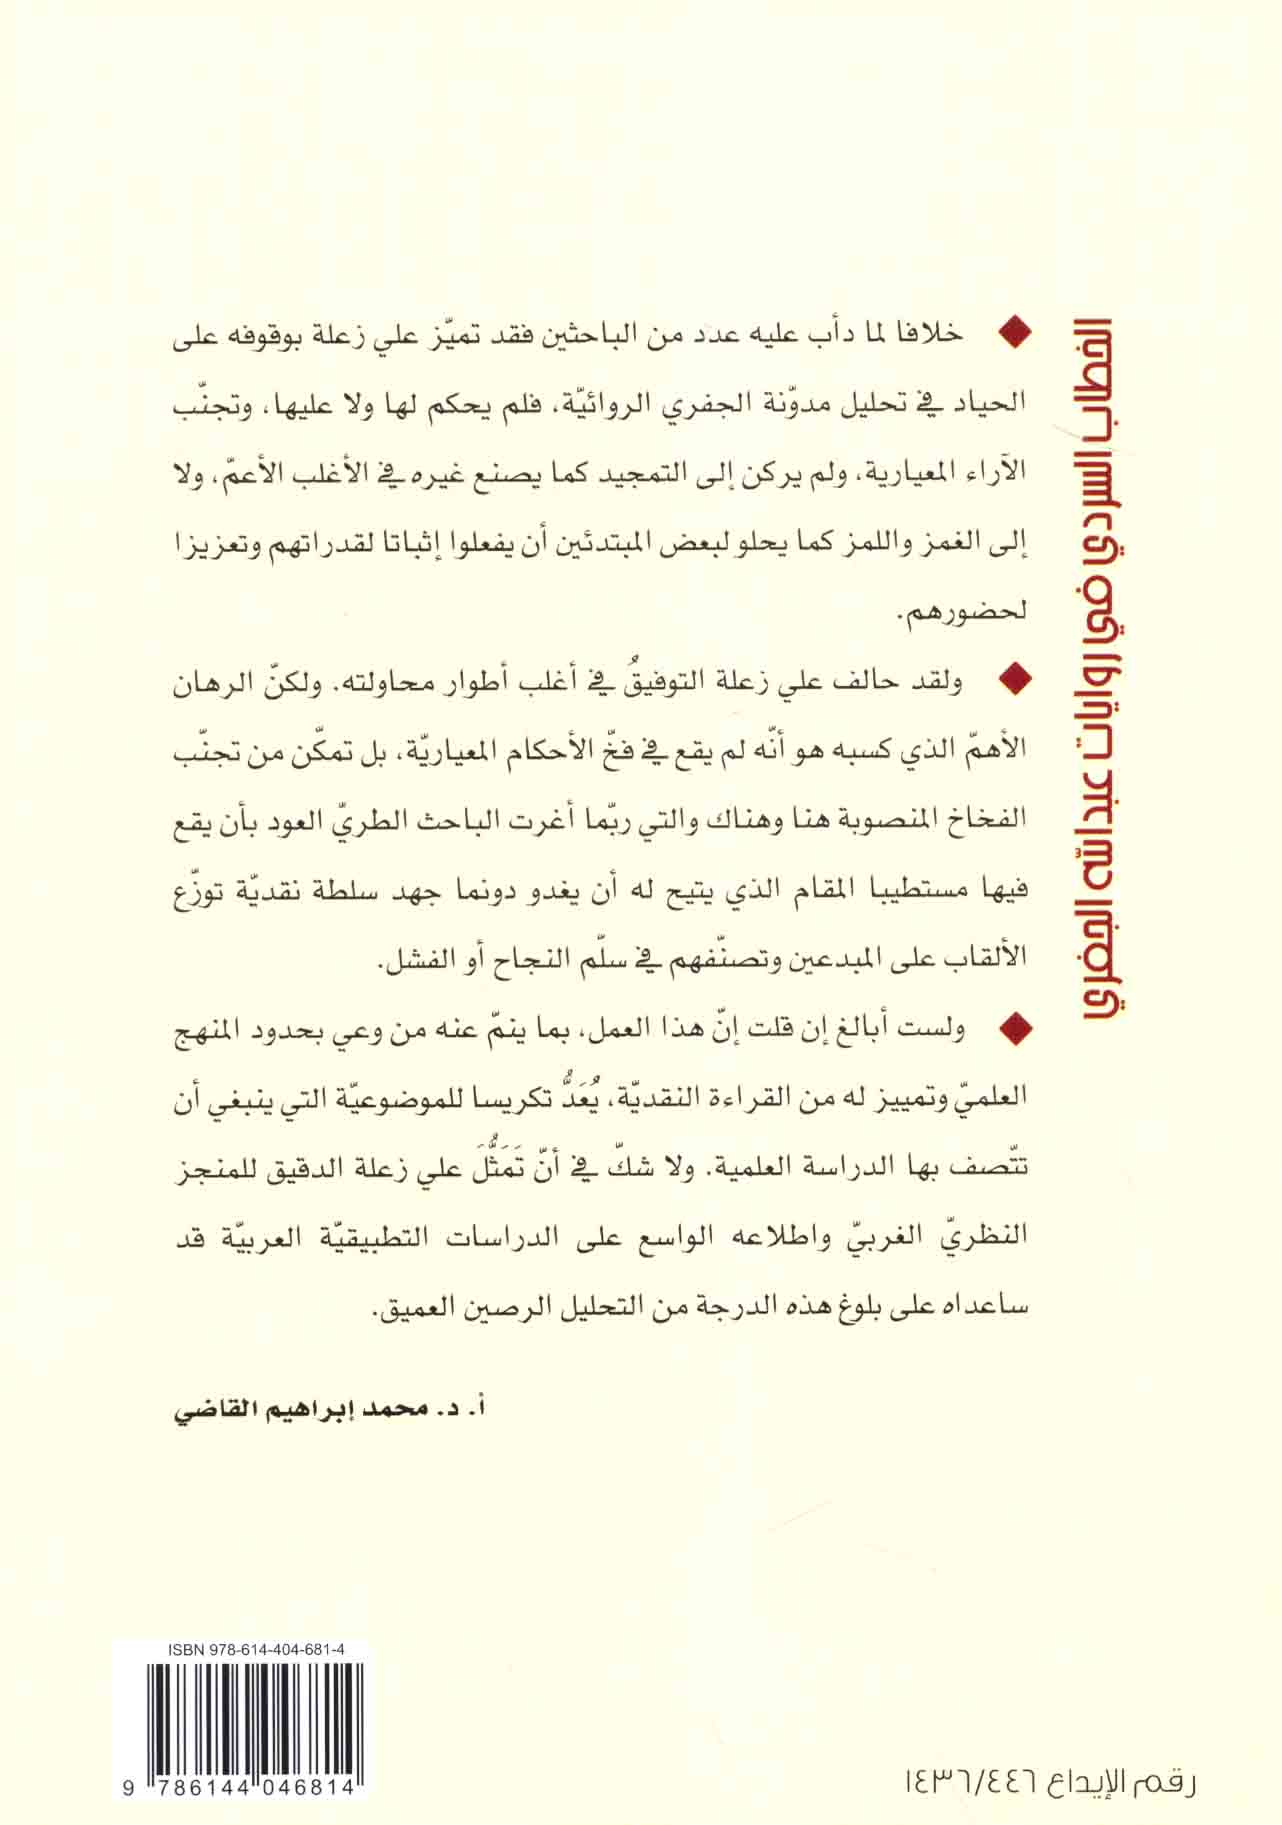 الخطاب السردي في روايات عبدالله الجفري
خلافا لما دأب عليه عدد من الباحثين فقد تميّز علي زعلة بوقوفه على
الحياد في تحليل مدوّنة الجفري الروائيّة، فلم يحكم لها ولا عليها، وتجنّب
الآراء المعيارية، ولم يركن إلى التمجيد كما يصنع غيره في الأغلب الأعمّ، ولا
إلى الغمز واللمز كما يحلو لبعض المبتدئين أن يفعلوا إثباتا لقدراتهم وتعزيزا
لحضورهم.
ولقد حالف علي زعلة التوفيقُ في أغلب أطوار محاولته. ولكنّ الرهان
الأهمّ الذي كسبه هو أنّه لم يقع في فخّ الأحكام المعياريّة، بل تمكّن من تجنّب
الفخاخ المنصوبة هنا وهناك والتي ربّما أغرت الباحث الطريّ العود بأن يقع
فيها مستطيبا المقام الذي يتيح له أن يغدو دونما جهد سلطة نقديّة توزّع
الألقاب على المبدعين وتصنّفهم في سلّم النجاح أو الفشل.
ولست أبالغ إن قلت إنّ هذا العمل، بما ينمّ عنه من وعي بحدود المنهج
العلميّ وتمييز له من القراءة النقديّة، يُعَدُّ تكريسا للموضوعيّة التي ينبغي أن
تتّصف بها الدراسة العلمية. ولا شكّ في أنّ تَمَثُّلَ علي زعلة الدقيق للمنجز
النظريّ الغربيّ واطلاعه الواسع على الدراسات التطبيقيّة العربيّة قد
ساعداه على بلوغ هذه الدرجة من التحليل الرصين العميق.
أ. د. محمد إبراهيم القاضي
ISBN 978-614-404-681-4
9 786144 046814
رقم الإيداع ١٤٣٦/٤٤٦